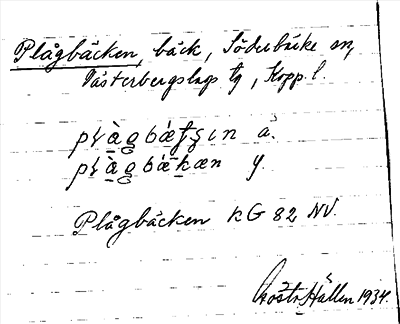 Plågbäcken, bäck, Söderbärke sn,
Västerbergslags tg, Kopp. l.
plὰgbæʃʒın ä.
plὰgbækæn y.
Plågbäcken kG 82 NV.
Hällen 1934.